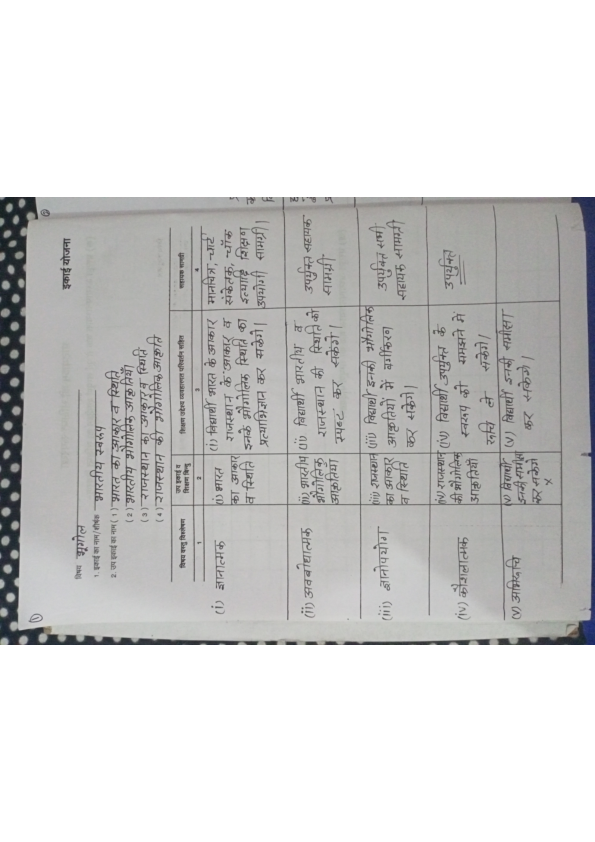 ①
इकाई योजना
विषय भूगोल
1. इकाई का नाम/शीर्षक भारतीय स्वरूप
2. उप इकाई का नाम (1) भारत का आकार व स्थिति
(2) भारतीय भौगोलिक आकृतियाँ
(3) राजस्थान का आकार व स्थिति
(4) राजस्थान की भौगोलिक आकृति
विषय वस्तु विश्लेषण
उप इकाई व
शिक्षण बिन्दु
शिक्षण उद्देश्य व्यवहारगत परिवर्तन सहित
सहायक सामग्री
1
2
3
4
(i) ज्ञानात्मक
(i) भारत
का आकार
व स्थिति
(i) विद्यार्थी भारत के आकार
राजस्थान के आकार व
इनके भौगोलिक स्थिति का
प्रत्याभिज्ञान कर सकेंगे।
मानचित्र, चार्ट
संकेतक, चॉक
इत्यादि शिक्षण
उपयोगी सामग्री।
(ii) अवबोधात्मक
(ii) भारतीय
भौगोलिक
आकृतियां
(ii) विद्यार्थी भारतीय व
राजस्थान की स्थिति को
स्पष्ट कर सकेंगे।
उपर्युक्त सहायक
सामग्री
(iii) ज्ञानोपयोग
(iii) राजस्थान
का आकार
व स्थिति
(iii) विद्यार्थी इनकी भौगोलिक
आकृतियों में वर्गीकरण
कर सकेंगे।
उपर्युक्त सभी
सहायक सामग्री
(iv) कौशलात्मक
(iv) राजस्थान
की भौगोलिक
आकृतियाँ
(iv) विद्यार्थी उपर्युक्त के
स्वरूप को समझने में
रुचि ले सकेंगे।
उपर्युक्त
(v) अभिरुचि
(v) विद्यार्थी
इनकी समीक्षा
कर सकेंगे
x
(v) विद्यार्थी इनकी समीक्षा
कर सकेंगे।